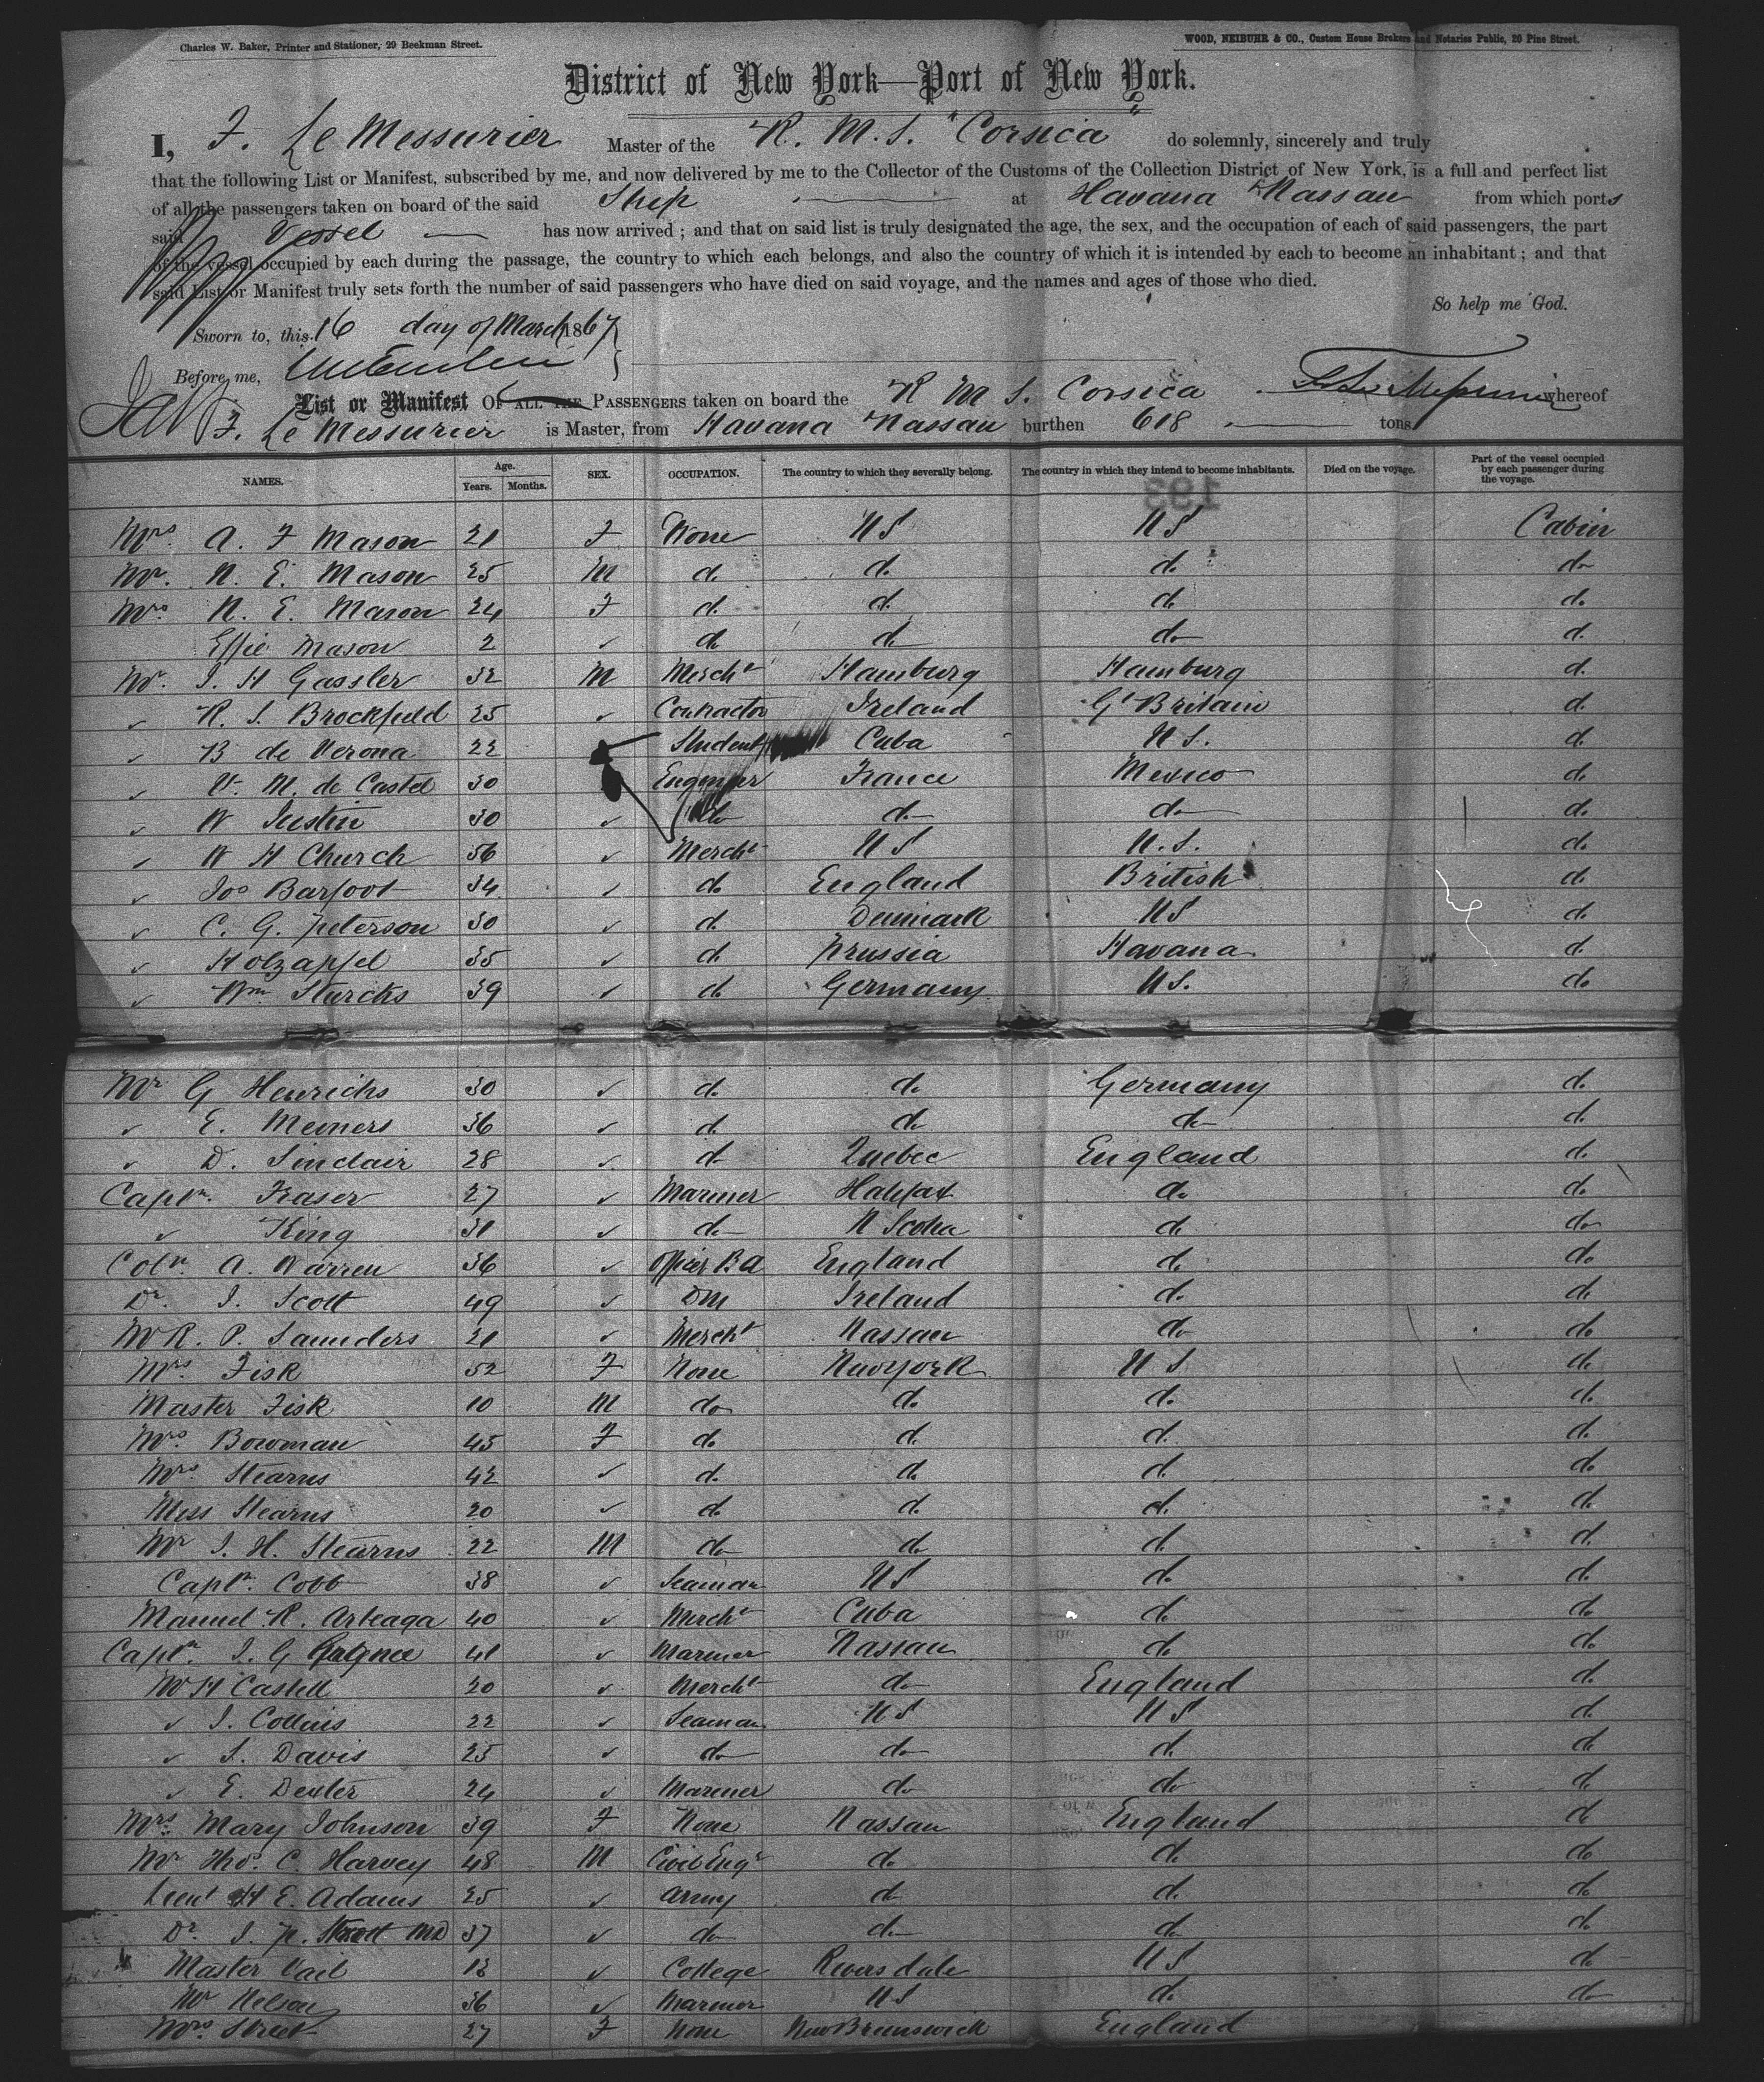 Charles W. Baker, Printer and Stationer, 29 Beekman Street.
WOOD, NEIBUHR & CO., Custom House Brokers and Notaries Public, 20 Pine Street.
District of New York—Port of New York.
I, F. Le Messurier Master of the R. M. S. "Corsica" do solemnly, sincerely and truly
that the following List or Manifest, subscribed by me, and now delivered by me to the Collector of the Customs of the Collection District of New York, is a full and perfect list
of all the passengers taken on board of the said Ship at Havana & Nassau from which ports
said Vessel has now arrived; and that on said list is truly designated the age, the sex, and the occupation of each of said passengers, the part
of the vessel occupied by each during the passage, the country to which each belongs, and also the country of which it is intended by each to become an inhabitant; and that
said List or Manifest truly sets forth the number of said passengers who have died on said voyage, and the names and ages of those who died.
So help me God.
Sworn to, this 16 day of March 1867
Before me,
List or Manifest OF ALL THE PASSENGERS taken on board the R M S. Corsica whereof
F. Le Messurier is Master, from Havana Nassau burthen 618 tons.
NAMES. Age. Years. Months. SEX. OCCUPATION. The country to which they severally belong. The country in which they intend to become inhabitants. Died on the voyage. Part of the vessel occupied by each passenger during the voyage.
193
Mrs. A. F Mason 21 F None US US Cabin
Mr. N. E. Mason 25 M do do do do
Mrs N. E. Mason 24 F do do do do
Effie Mason 2 ✓ do do do do
Mr. J. H Gassler 32 M Mercht Hamburg Hamburg do
✓ R. S. Brockfield 25 ✓ Contractor Ireland Gt Britain do
✓ B de Verona 22 Student Cuba U S. do
✓ V. M. de Castel 30 Engineer France Mexico do
✓ W Justin 30 ✓ do do do do
✓ W H Church 56 ✓ Mercht US U.S. do
✓ Jos Barfoot 34 ✓ do England British do
✓ C. G. Peterson 30 ✓ do Denmark US do
✓ Holzapfel 35 ✓ do Prussia Havana do
✓ Wm Sturcks 39 ✓ do Germany US. do
Mr G Henrichs 30 ✓ do do Germany do
✓ E. Meiners 36 ✓ do do do do
✓ D. Sinclair 28 ✓ do Quebec England do
Captn. Fraser 27 ✓ Mariner Halifax do do
✓ King 31 ✓ do N Scotia do do
Coln. A. Warren 36 ✓ Officer BA England do do
Dr. J. Scott 49 ✓ DM Ireland do do
Mr R. P. Saunders 21 ✓ Mercht Nassau do do
Mrs. Fisk 52 F None New York US do
Master Fisk 10 M do do do do
Mrs. Bowman 45 F do do do do
Mrs Stearns 42 ✓ do do do do
Miss Stearns 20 ✓ do do do do
Mr J. H. Stearns 22 M do do do do
Captn. Cobb 38 ✓ Seaman US do do
Manuel R. Arteaga 40 ✓ Mercht Cuba do do
Captn J. G 41 ✓ Mariner Nassau do do
Mr H Castell 20 ✓ Mercht do England do
✓ J. Collins 22 ✓ Seaman US US do
✓ S. Davis 25 ✓ do do do do
✓ E. Dexter 24 ✓ Mariner do do do
Mrs. Mary Johnson 39 F None Nassau England do
Mr Thos. C. Harvey 48 M Civil Engr do do do
Lieut H E. Adams 25 ✓ Army do do do
Dr. J. P. MD 37 ✓ do do do do
Master Vail 13 ✓ College Riversdale US do
Mr Nelson 36 ✓ Mariner US do do
Mrs. Street 27 F None New Brunswick England